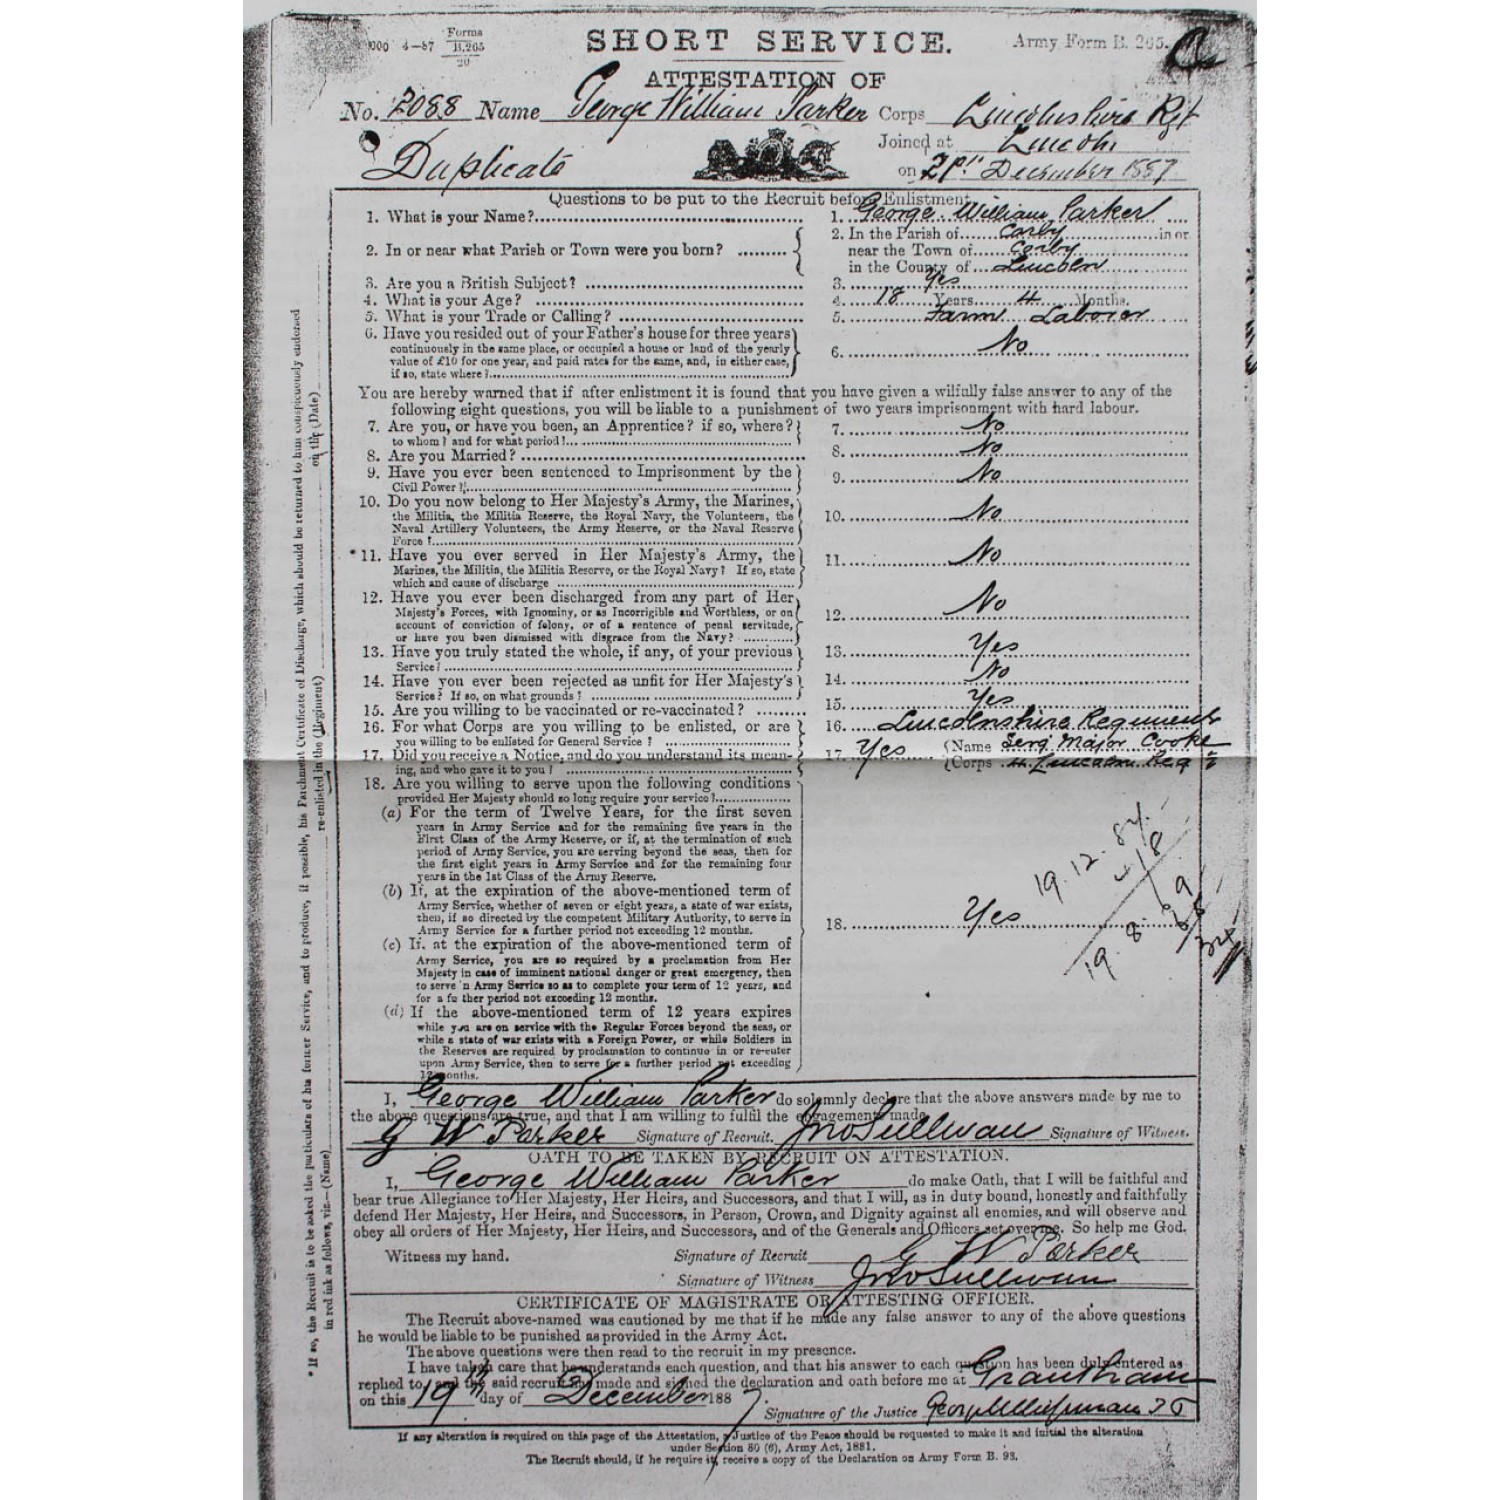 000 4—87 Forms B.265 20
SHORT SERVICE.
Army Form B. 265.
ATTESTATION OF
No. 2088 Name George William Parker Corps Lincolnshire Rgt
Duplicate
Joined at Lincoln
on 21st December 1887
Questions to be put to the Recruit before Enlistment.
1. What is your Name? 1. George William Parker
2. In or near what Parish or Town were you born? 2. In the Parish of Corby in or
near the Town of Corby
in the County of Lincoln
3. Are you a British Subject? 3. Yes
4. What is your Age? 4. 18 Years 4 Months.
5. What is your Trade or Calling? 5. Farm Laborer
6. Have you resided out of your Father's house for three years
continuously in the same place, or occupied a house or land of the yearly
value of £10 for one year, and paid rates for the same, and, in either case,
if so, state where? 6. No
You are hereby warned that if after enlistment it is found that you have given a wilfully false answer to any of the
following eight questions, you will be liable to a punishment of two years imprisonment with hard labour.
7. Are you, or have you been, an Apprentice? if so, where? 7. No
to whom? and for what period?
8. Are you Married? 8. No
9. Have you ever been sentenced to Imprisonment by the 9. No
Civil Power?
10. Do you now belong to Her Majesty's Army, the Marines,
the Militia, the Militia Reserve, the Royal Navy, the Volunteers, the 10. No
Naval Artillery Volunteers, the Army Reserve, or the Naval Reserve
Force?
*11. Have you ever served in Her Majesty's Army, the 11. No
Marines, the Militia, the Militia Reserve, or the Royal Navy? If so, state
which and cause of discharge
12. Have you ever been discharged from any part of Her
Majesty's Forces, with Ignominy, or as Incorrigible and Worthless, or on 12. No
account of conviction of felony, or of a sentence of penal servitude,
or have you been dismissed with disgrace from the Navy?
13. Have you truly stated the whole, if any, of your previous 13. Yes
Service?
14. Have you ever been rejected as unfit for Her Majesty's 14. No
Service? If so, on what grounds?
15. Are you willing to be vaccinated or re-vaccinated? 15. Yes
16. For what Corps are you willing to be enlisted, or are 16. Lincolnshire Regiment
you willing to be enlisted for General Service?
17. Did you receive a Notice, and do you understand its mean- 17. Yes Name Serg Major Cooke
ing, and who gave it to you? Corps 4 Lincoln Reg
18. Are you willing to serve upon the following conditions
provided Her Majesty should so long require your service?
(a) For the term of Twelve Years, for the first seven
years in Army Service and for the remaining five years in the
First Class of the Army Reserve, or if, at the termination of such
period of Army Service, you are serving beyond the seas, then for
the first eight years in Army Service and for the remaining four
years in the 1st Class of the Army Reserve.
(b) If, at the expiration of the above-mentioned term of
Army Service, whether of seven or eight years, a state of war exists,
then, if so directed by the competent Military Authority, to serve in
Army Service for a further period not exceeding 12 months.
18. Yes
19.12.87
4.18
19.8.69
(c) If, at the expiration of the above-mentioned term of
Army Service, you are so required by a proclamation from Her
Majesty in case of imminent national danger or great emergency, then
to serve n Army Service so as to complete your term of 12 years, and
for a fu ther period not exceeding 12 months.
(d) If the above-mentioned term of 12 years expires
while you are on service with the Regular Forces beyond the seas, or
while a state of war exists with a Foreign Power, or while Soldiers in
the Reserves are required by proclamation to continue in or re-enter
upon Army Service, then to serve for a further period not exceeding
12 months.
I, George William Parker do solemnly declare that the above answers made by me to
the above questions are true, and that I am willing to fulfil the engagements made.
G W Parker Signature of Recruit. Jno Sullivan Signature of Witness.
OATH TO BE TAKEN BY RECRUIT ON ATTESTATION.
I, George William Parker do make Oath, that I will be faithful and
bear true Allegiance to Her Majesty, Her Heirs, and Successors, and that I will, as in duty bound, honestly and faithfully
defend Her Majesty, Her Heirs, and Successors, in Person, Crown, and Dignity against all enemies, and will observe and
obey all orders of Her Majesty, Her Heirs, and Successors, and of the Generals and Officers set over me. So help me God.
Witness my hand. Signature of Recruit G W Parker
Signature of Witness Jno Sullivan
CERTIFICATE OF MAGISTRATE OR ATTESTING OFFICER.
The Recruit above-named was cautioned by me that if he made any false answer to any of the above questions
he would be liable to be punished as provided in the Army Act.
The above questions were then read to the recruit in my presence.
I have taken care that he understands each question, and that his answer to each question has been duly entered as
replied to, and the said recruit has made and signed the declaration and oath before me at Grantham
on this 19th day of December 1887.
Signature of the Justice
If any alteration is required on this page of the Attestation, a Justice of the Peace should be requested to make it and initial the alteration
under Section 80 (6), Army Act, 1881.
The Recruit should, if he require it, receive a copy of the Declaration on Army Form B. 93.
* If so, the Recruit is to be asked the particulars of his former Service, and to produce, if possible, his Parchment Certificate of Discharge, which should be returned to him conspicuously endorsed
in red ink as follows, viz.—(Name) re-enlisted in the (Regiment) on the (Date)